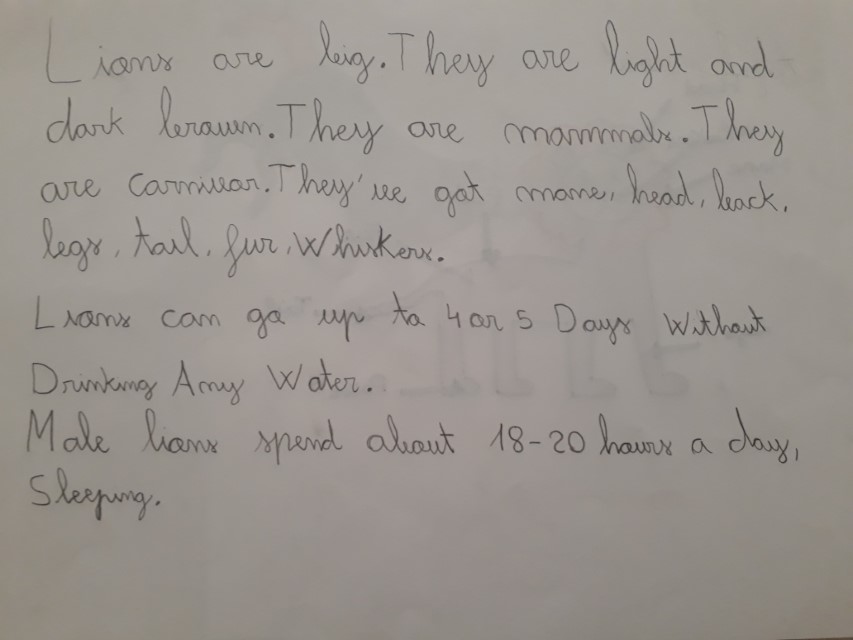 Lions are big. They are light and
dark brown. They are mammals. They
are carnivor. They've got mane, head, back,
legs, tail, fur, Whiskers.
Lions can go up to 4 or 5 Days Without
Drinking Any Water.
Male lions spend about 18-20 hours a day,
Sleeping.